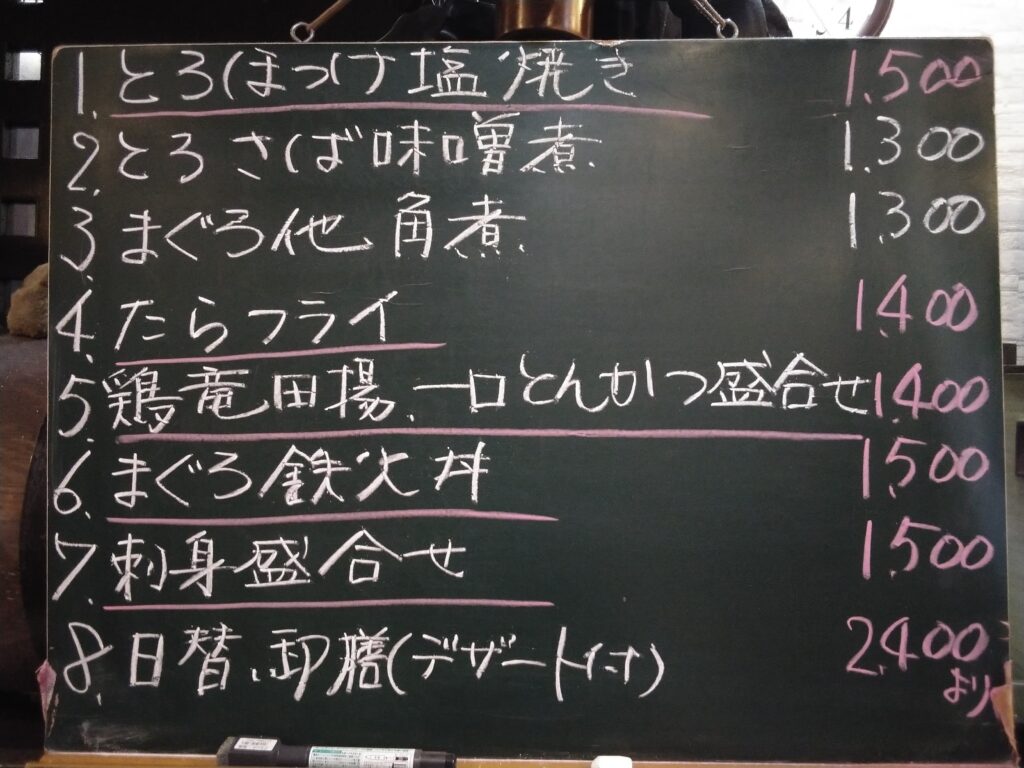 1. とろほっけ塩焼き 1.500
2. とろさば味噌煮 1.300
3. まぐろ他、角煮 1.300
4. たらフライ 1.400
5. 鶏竜田揚、一口とんかつ盛合せ 1.400
6. まぐろ鉄火丼 1.500
7. 刺身盛合せ 1.500
8. 日替、御膳(デザート付) 2.400
より
4